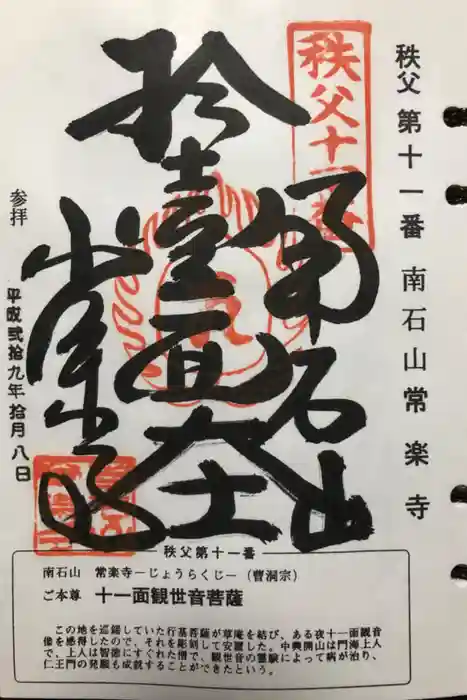 秩父 第十一番 南石山常楽寺
秩父十一番
南石山
拾壹面大士
常楽寺
参拝
平成弐拾九年拾月八日
秩父第十一番
南石山 常楽寺ーじょうらくじー（曹洞宗）
ご本尊 十一面観世音菩薩
この地を巡錫していた行基菩薩が草庵を結び、ある夜十一面観音
像を感得したので、それを彫刻して安置した。中興開山は門海上人
で、上人は智徳にすぐれた僧で、観世音の霊験によって病が治り、
仁王門の発願も成就することができたという。